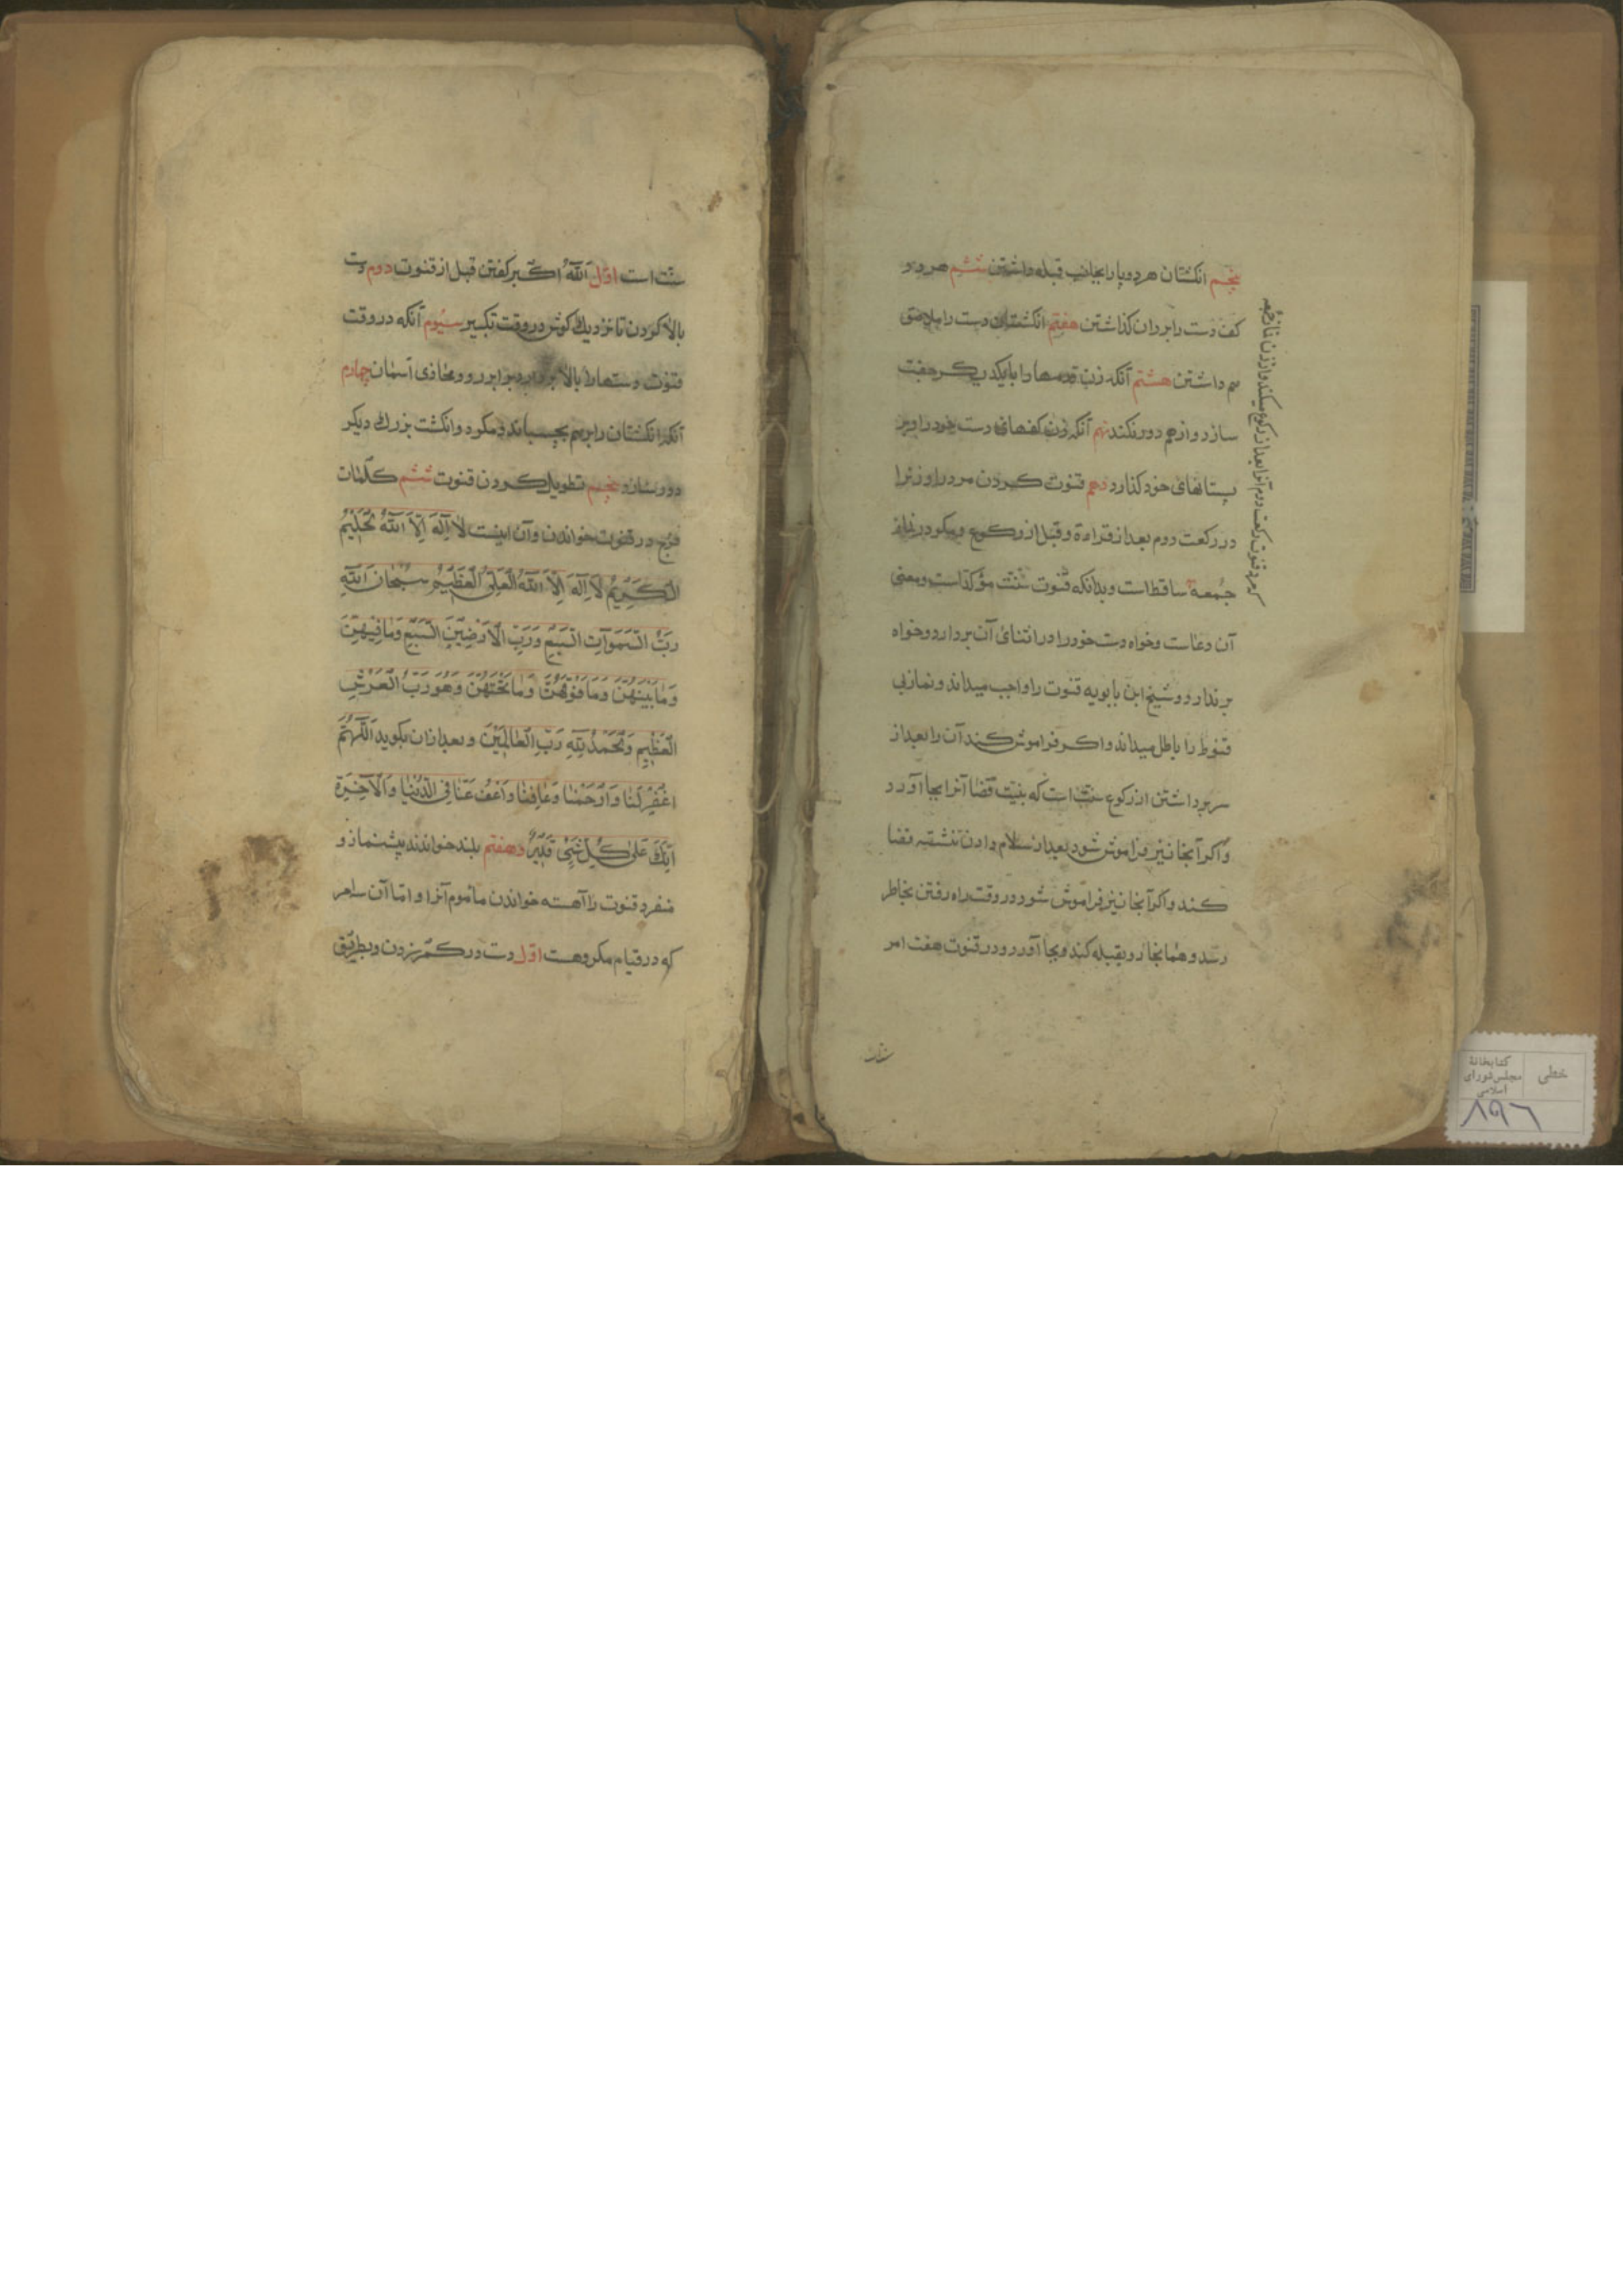 پنجم انکشتان هر دو پا را بجانب قبله داشتن ششم هر دو
کف دست را بر ران کذاشتن هفتم انکشتان دست را ملاصق
هم داشتن هشتم آنکه زن قدمها را با یکدیکر جفت
سازد و از هم دور نکند نهم آنکه زن کفهای دست خود را بر
پستانهای خود کذارد دهم قنوت کردن مرد را و زنرا
در رکعت دوم بعد از قراءة و قبل از رکوع و مکو در نماز
جمعه ساقط است و بدانکه قنوت سُنّت مؤکد است و معنی
آن دعاست و خواه دست خود را در اثنای آن بردارد و خواه
برندارد و شیخ ابن بابویه قنوت را واجب میداند و نماز بی
قنوط را باطل میداند و اکر فراموش کند آن را بعد از
سر برداشتن از رکوع سنت است که بنیّت قضا آنرا بجا آورد
و اکر آنجا نیز فراموش شود بعد از سلام دادن تشهد قضا
کند و اکر آنجا نیز فراموش شود در وقت راه رفتن بخاطر
رسد و همانجا رو بقبله کند و بجا آورد و در قنوت هفت امر
کرد قنوت رکعت دوم آنرا بعد از رکوع میکند و از زن نماز جمعه
سنت
خطی
کتابخانهٔ
مجلس شورای
اسلامی
۸۹۶
سنّت است اوّل اَللّهُ اَکبر کفتن قبل از قنوت دوم دست
بالا کردن تا نزدیك کوش در وقت تکبیر سیُوم آنکه در وقت
قنوت دستها را بالا بردارد برابر رو و محاذی آسمان چهارم
آنکه انکشتان را بر هم بچسباند و مکرد و انکشت بزرك دیکر
دور سازد پنجم تطویل کردن قنوت ششم کلمات
فرج در قنوت خواندن و آن اینست لاٰ اِلٰهَ اِلاَّ اللّٰهُ الْحَلِیْمُ
الْکَرِیْمُ لاٰ اِلٰهَ اِلاَّ اللّٰهُ الْعَلِیُّ الْعَظِیْمُ سُبْحٰانَ اللّٰهِ
رَبِّ السَّمٰوَاتِ السَّبْعِ وَرَبِّ الْاَرَضِیْنَ السَّبْعِ وَمٰافِیْهِنَّ
وَمٰابَیْنَهُنَّ وَمٰافَوْقَهُنَّ وَمٰاتَحْتَهُنَّ وَهُوَ رَبُّ الْعَرْشِ
الْعَظِیْمِ وَالْحَمْدُ لِلّٰهِ رَبِّ الْعٰالَمِیْنَ و بعد از ان بکوید اَللّٰهُمَّ
اغْفِرْلَنٰا وَارْحَمْنٰا وَعٰافِنٰا وَاعْفُ عَنّٰا فِی الدُّنْیٰا وَالْآخِرَةِ
اِنَّكَ عَلیٰ کُلِّ شَیْیٍٔ قَدِیْرٌ و هفتم بلند خواندند پیشنماز و
منفرد قنوت را آهسته خواندن ماموم آنرا و اما آن سامر
که در قیام مکروهست اوّل دست در کمر زدن و بطریق